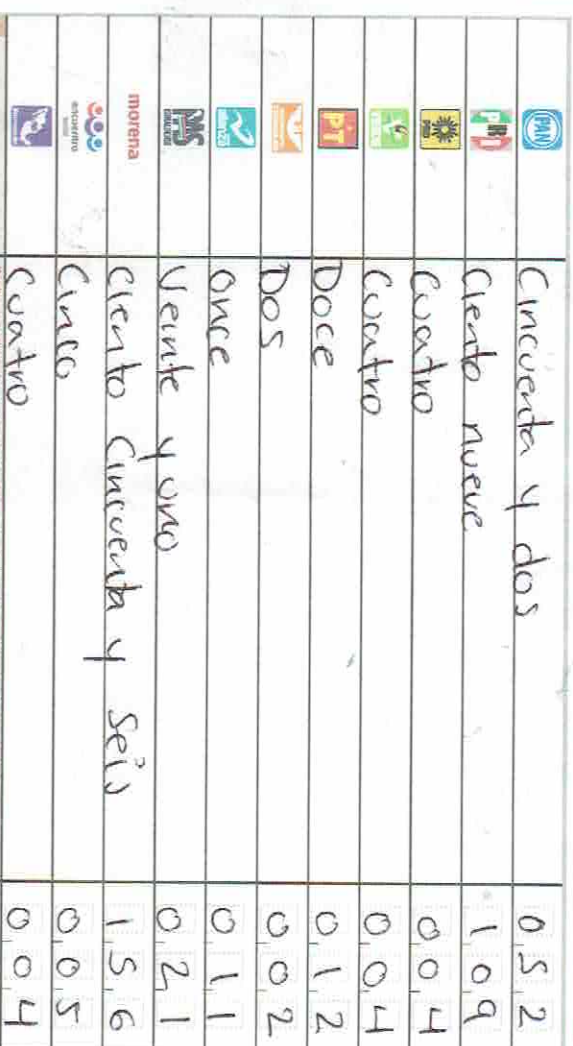 PAN Cincuenta y dos 0 5 2
PRI Ciento nueve 1 0 9
PRD Cuatro 0 0 4
Cuatro 0 0 4
PT Doce 0 1 2
Dos 0 0 2
alianza Once 0 1 1
Veinte y uno 0 2 1
morena Ciento Cincuenta y Seis 1 5 6
encuentro social Cinco 0 0 5
Cuatro 0 0 4